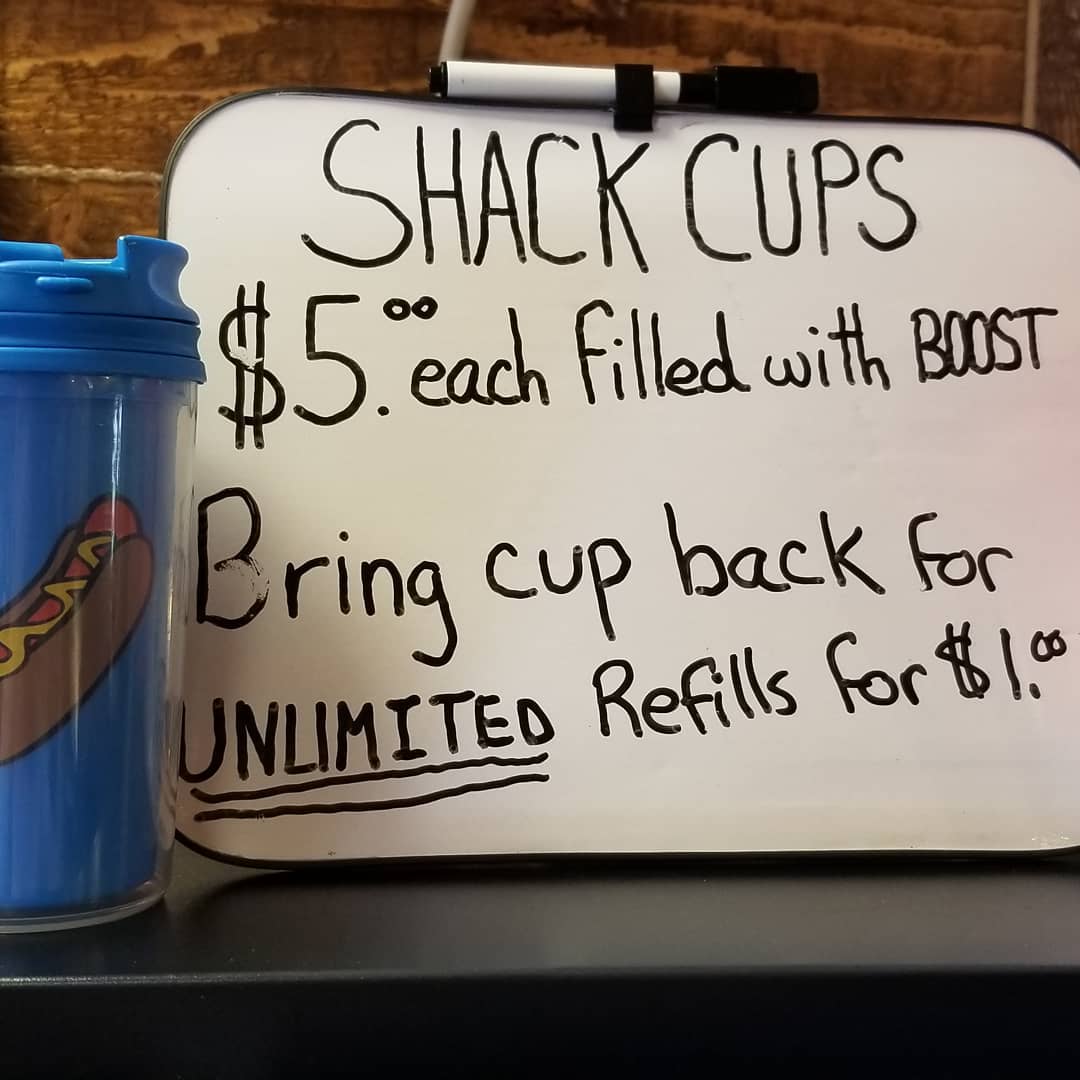 SHACK CUPS
$5.00 each filled with BOOST
Bring cup back for
UNLIMITED Refills for $1.00